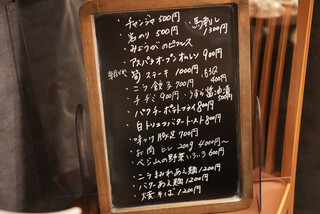 ・チャンジャ 500円
・岩のり 500円
・馬刺し 1300円
・みょうがのピクルス
・アスパラオーブンオムレン 900円
筍ステーキ 1000円
・ニラ餃子 700円
400円
・チヂミ 900円
・うずら醤油漬 500円
・パクチーポテトフライ 800円
・白トリュフバタートースト 800円
・味つけ豚足 700円
・お肉 ヒレ 200g 4,000円〜
・ベジムの野菜いろいろ 600円
・ニラまみれあえ麺 1200円
・バターあえ麺 1200円
・焼そば 1200円